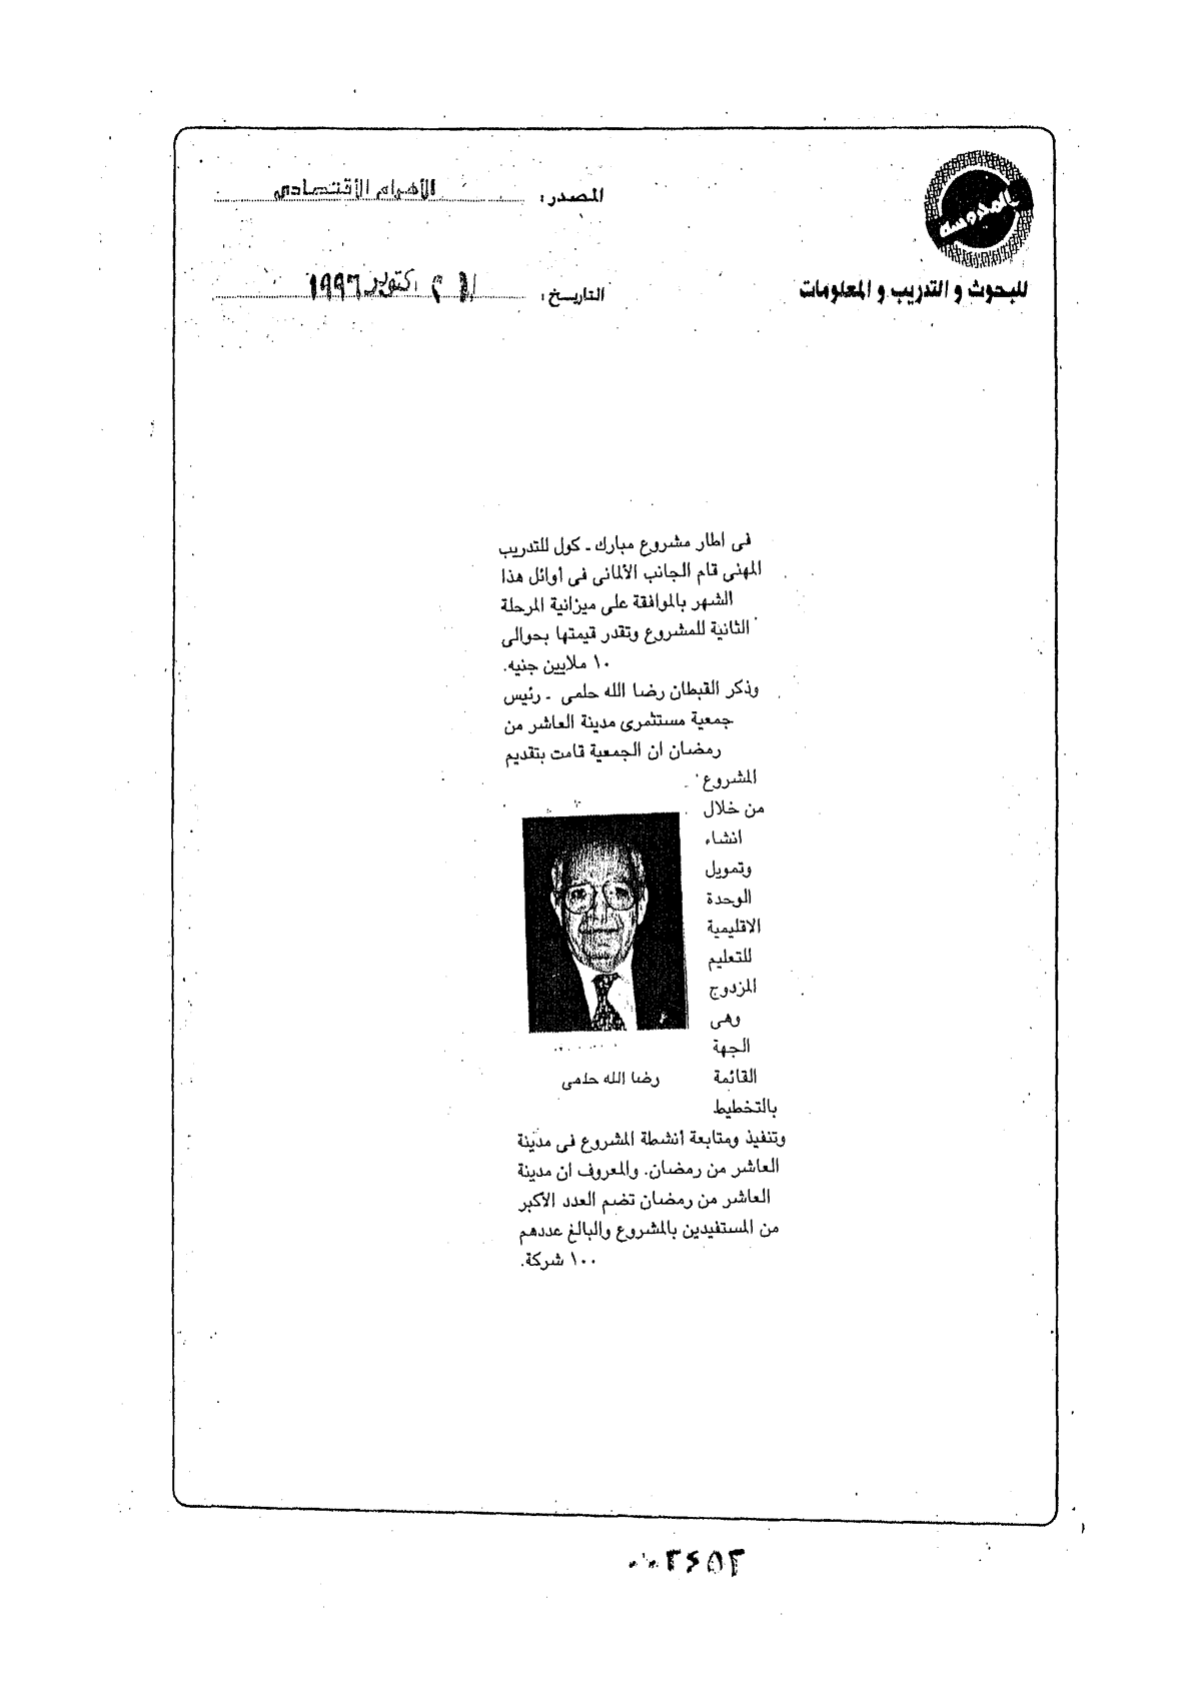 المدرسة
للبحوث و التدريب و المعلومات
المصدر: الأهرام الاقتصادى
التاريخ: أكتوبر ١٩٩٦
فى اطار مشروع مبارك ـ كول للتدريب
المهنى قام الجانب الألمانى فى أوائل هذا
الشهر بالموافقة على ميزانية المرحلة
الثانية للمشروع وتقدر قيمتها بحوالى
١٠ ملايين جنيه.
وذكر القبطان رضا الله حلمى ـ رئيس
جمعية مستثمرى مدينة العاشر من
رمضان ان الجمعية قامت بتقديم
المشروع
من خلال
انشاء
وتمويل
الوحدة
الاقليمية
للتعليم
المزدوج
وهى
الجهة
القائمة
بالتخطيط
رضا الله حلمى
وتنفيذ ومتابعة أنشطة المشروع فى مدينة
العاشر من رمضان. والمعروف ان مدينة
العاشر من رمضان تضم العدد الأكبر
من المستفيدين بالمشروع والبالغ عددهم
١٠٠ شركة.